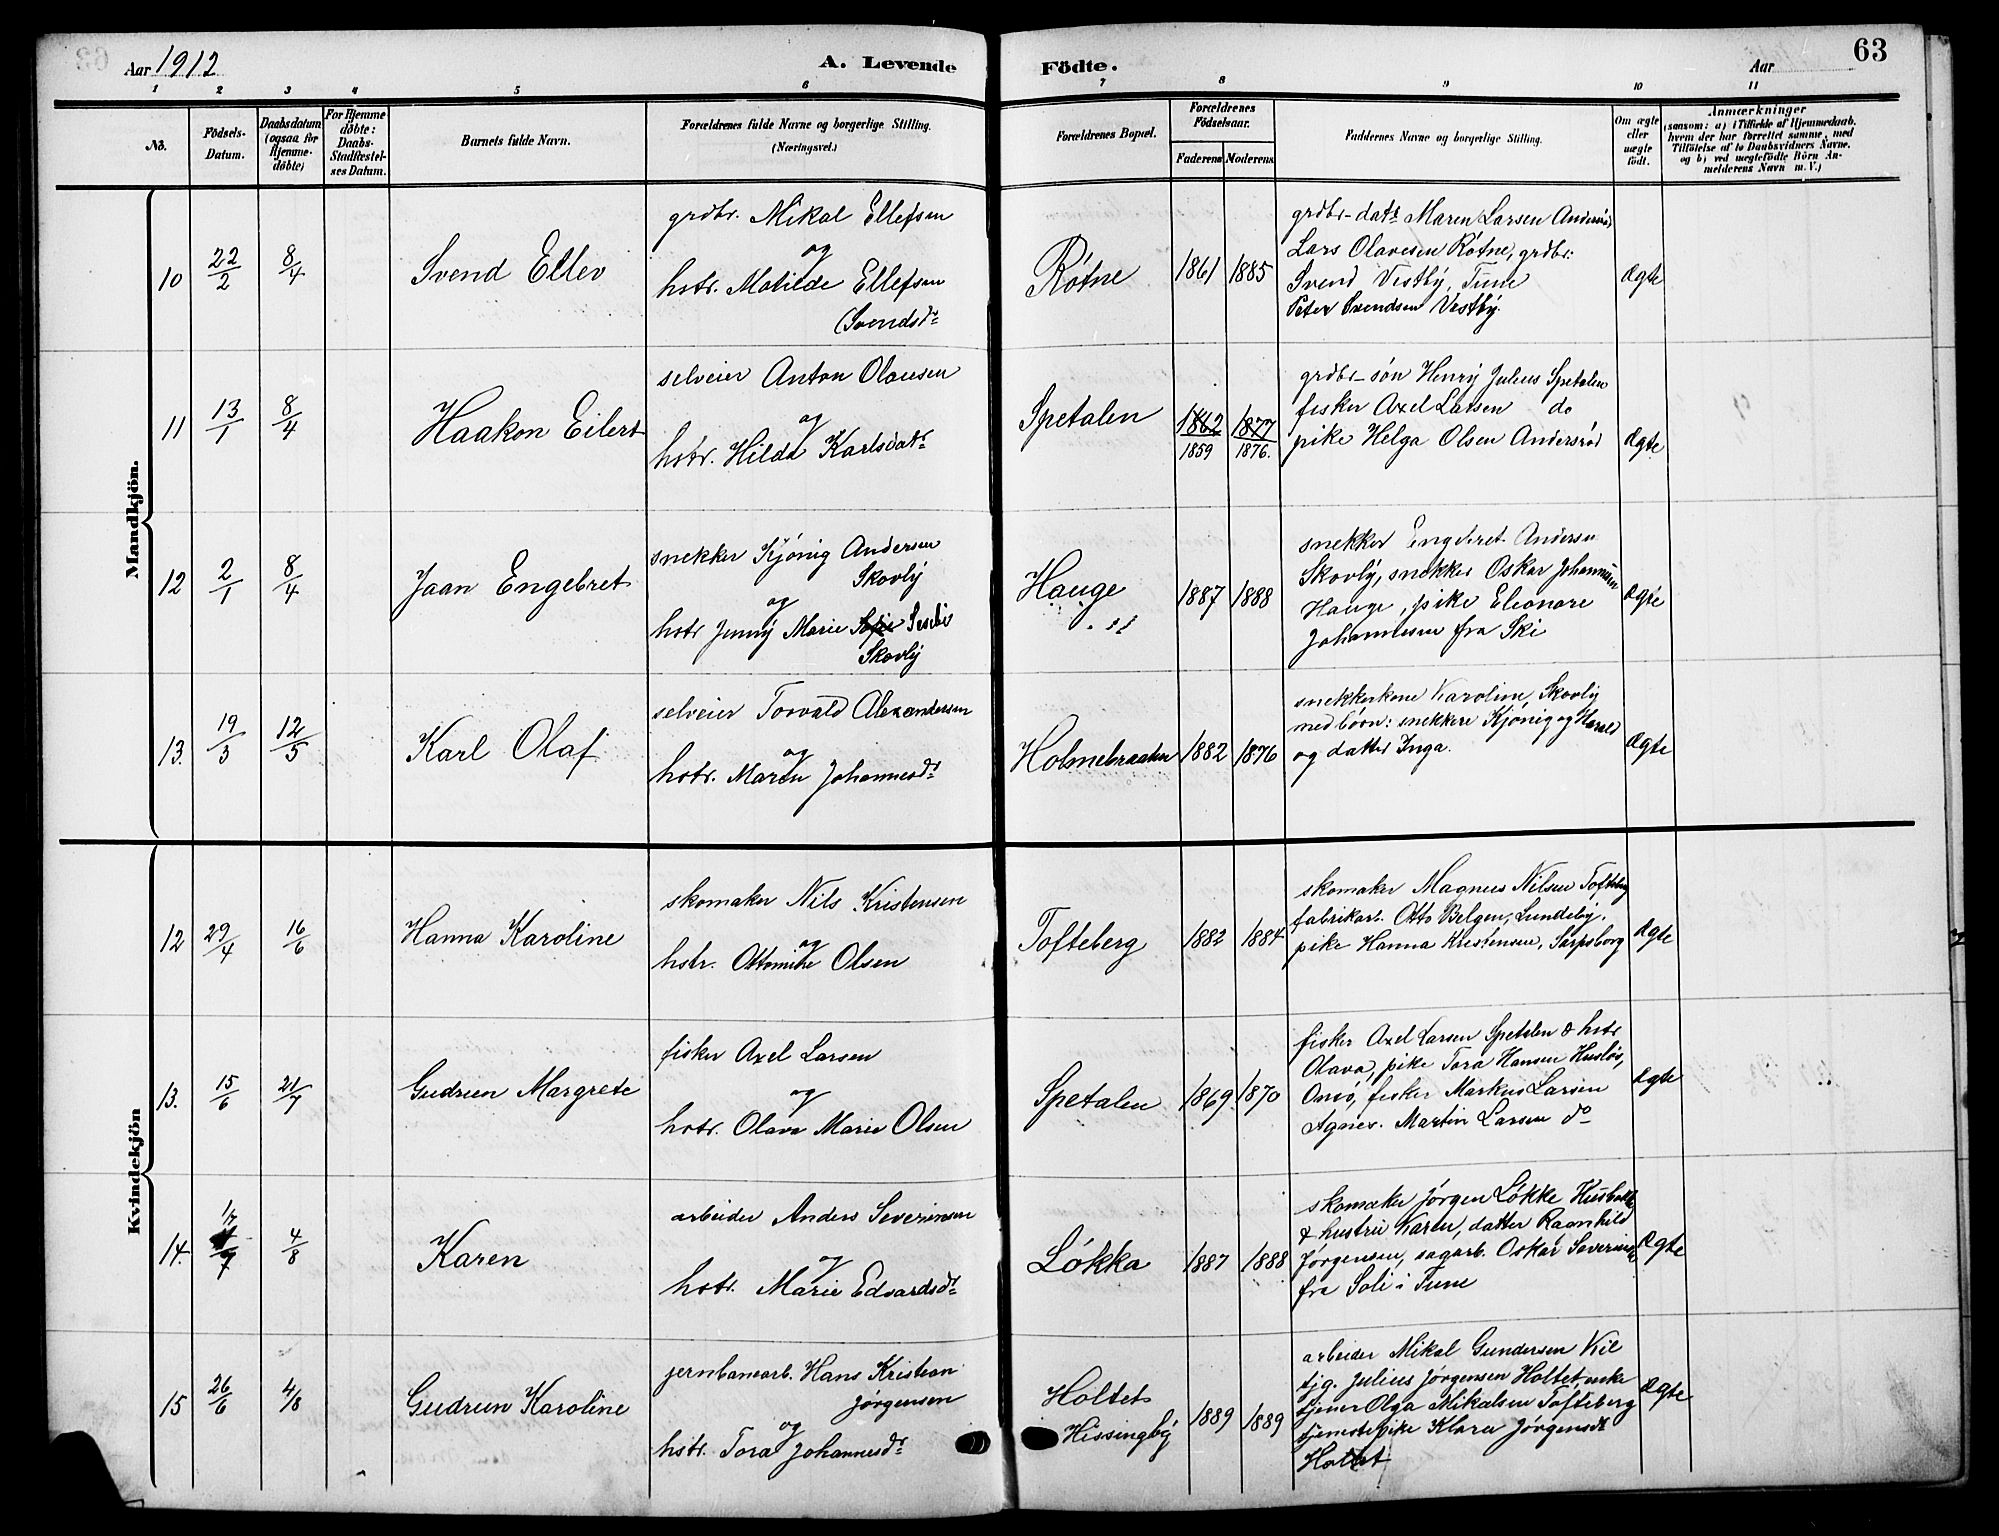 Aar 1912
A. Levende
Födte.
Aar
63
1 2 3 4 5 6 7 8 9 10 11
No.
Födsels-
Datum.
Daabsdatum
(ogsaa for
Hjemme-
döbte)
For Hjemme
döbte:
Daabs-
Stadfæstel-
ses Datum.
Barnets fulde Navn.
Forældrenes fulde Navne og borgerlige Stilling.
(Næringsvei.)
Forældrenes Bopæl.
Forældrenes
Födselsaar.
Faderens Moderens
Faddernes Navne og borgerlige Stilling.
Om ægte
eller
uægte
födt.
Anmærkninger
(saasom: a) i Tilfælde af Hjemmedaab.
hvem der har forrettet samme, med
Tilföielse af to Daabsvidners Navne.
og b) ved uægtefödte Börn An-
melderens Navn m. V.)
Mandkjön.
10
22/2
8/4
Svend Ellev
grdbr. Mikal Ellefsen
og
hstr. Matilde Ellefsen
(Svendsdr
Røtne
1861
1885
grdbr-datr Maren Larsen
Lars Olavesen Røtne, grdbr:
Svend Vestby, Tune
Peter Svendsen Vestby.
ægte
11
13/1
8/4
Haakon Eilert
selveier Anton Olausen
og
hstr. Hilda Karlsdatr
Spetalen
1862
1859
1877
1876.
grdbr-søn Henry Julius Spetalen
fisker Axel Larsen do
pike Helga Olsen Andersrød
ægte
12
2/1
8/4
Jaan Engebret
snekker Kjønig Andersen
Skovly
og
hstr Jenny Marie Sofie
Skovly
Hauge
1887
1888
snekker Engebret Andersen
Skovly, snekker Oskar Johannesen
Hauge, pike Eleonore
Johannesen fra Ski
ægte
13.
19/3
12/5
Karl Olaf
selveier Torvald Alexandersen
og
hstr. Maren Johannesdr
Holmebraaten
1882
1876
snekkerkone Karoline, Skovly
med børn: snekkere Kjønig og Harald
og datter Inga.
ægte
Kvindekjön
12
29/4
16/6
Hanna Karoline
skomaker Nils Kristensen
og
hstr. Ottomine Olsen
Tofteberg
1882
1884
skomaker Magnus Nilsen Tofteberg
fabrikarb. Otto Belgen, Lundeby.
pike Hanna Kristensen, Sarpsborg
ægte
13.
15/6
21/7
Gudrun Margrete
fisker Axel Larsen
og
hstr. Olava Marie Olsen
Spetalen
1869
1870
fisker Axel Larsen Spetalen & hstr
Olava, pike Tora Hansen Husløs,
Onsø, fisker Markus Larsen
Agnes. Martin Larsen do
ægte
14.
17/7
4/8
Karen
arbeider Anders Severinsen
og
hstr. Marie Edvardsdr
Løkka
1887
1888
skomaker Jørgen Løkke
& hustru Karen, datter Ragnhild
Jørgensen, sagarb. Oskar Severinsen
fra Soli i Tune
ægte
15
26/6
4/8
Gudrun Karoline
jernbanearb. Hans Kristian
Jørgensen
og
hstr. Tora Johannesdr
Holtet
Hissingby
1889
1889
arbeider Mikal Gundersen Kil
tjg. Julius Jørgensen Holtet
tjener Olga Mikalsen Tofteberg
tjenestepike Klara Jørgensdr
Holtet
ægte